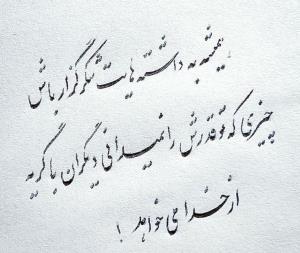 همیشه به داشته هایت شکرگزار باش
چیزی که تو قدرش را نمیدانی دیگران با گریه
از خدا می خواهند !